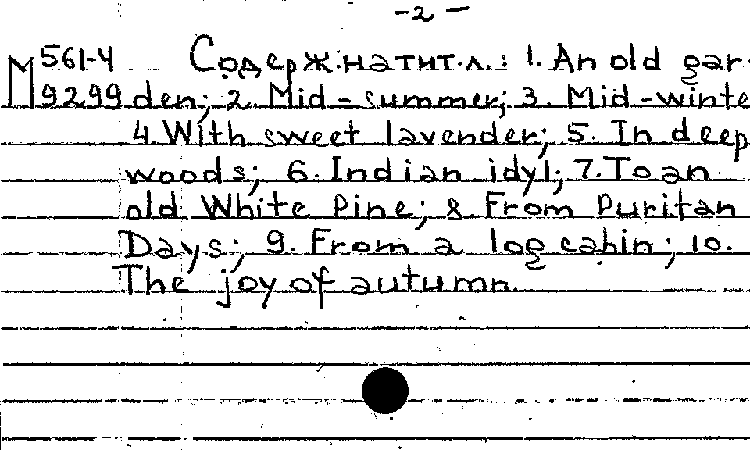 -2-
М 561-4 Содерж.на тит.л.: 1. An old gar-
9299 den; 2. Mid-summer; 3. Mid-winte
4. With sweet lavender; 5. In deep
woods; 6. Indian idyl; 7. To an
old White Pine; 8. From Puritan
Days; 9. From a log cabin; 10.
The joy of autumn.